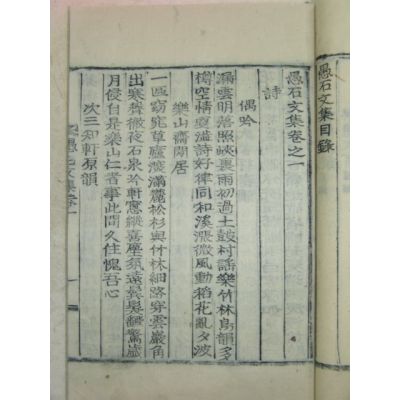 愚石文集目錄
愚石文集卷之一
詩
偶吟
漏雲明落照峽裏雨初過土鼓村謠樂竹林鳥韻多
空情更溢詩好律同和溪漲微風動稻花亂夕波
樂山齋閒居
一區窈窕草廬深滿麓松杉與竹林細路穿雲巖角
出寒聲徹夜石泉吟軒窓縱喜塵遠飜驚歲
月侵自是樂山仁者事此間久住愧吾心
次三知軒原韻
愚石文集卷一